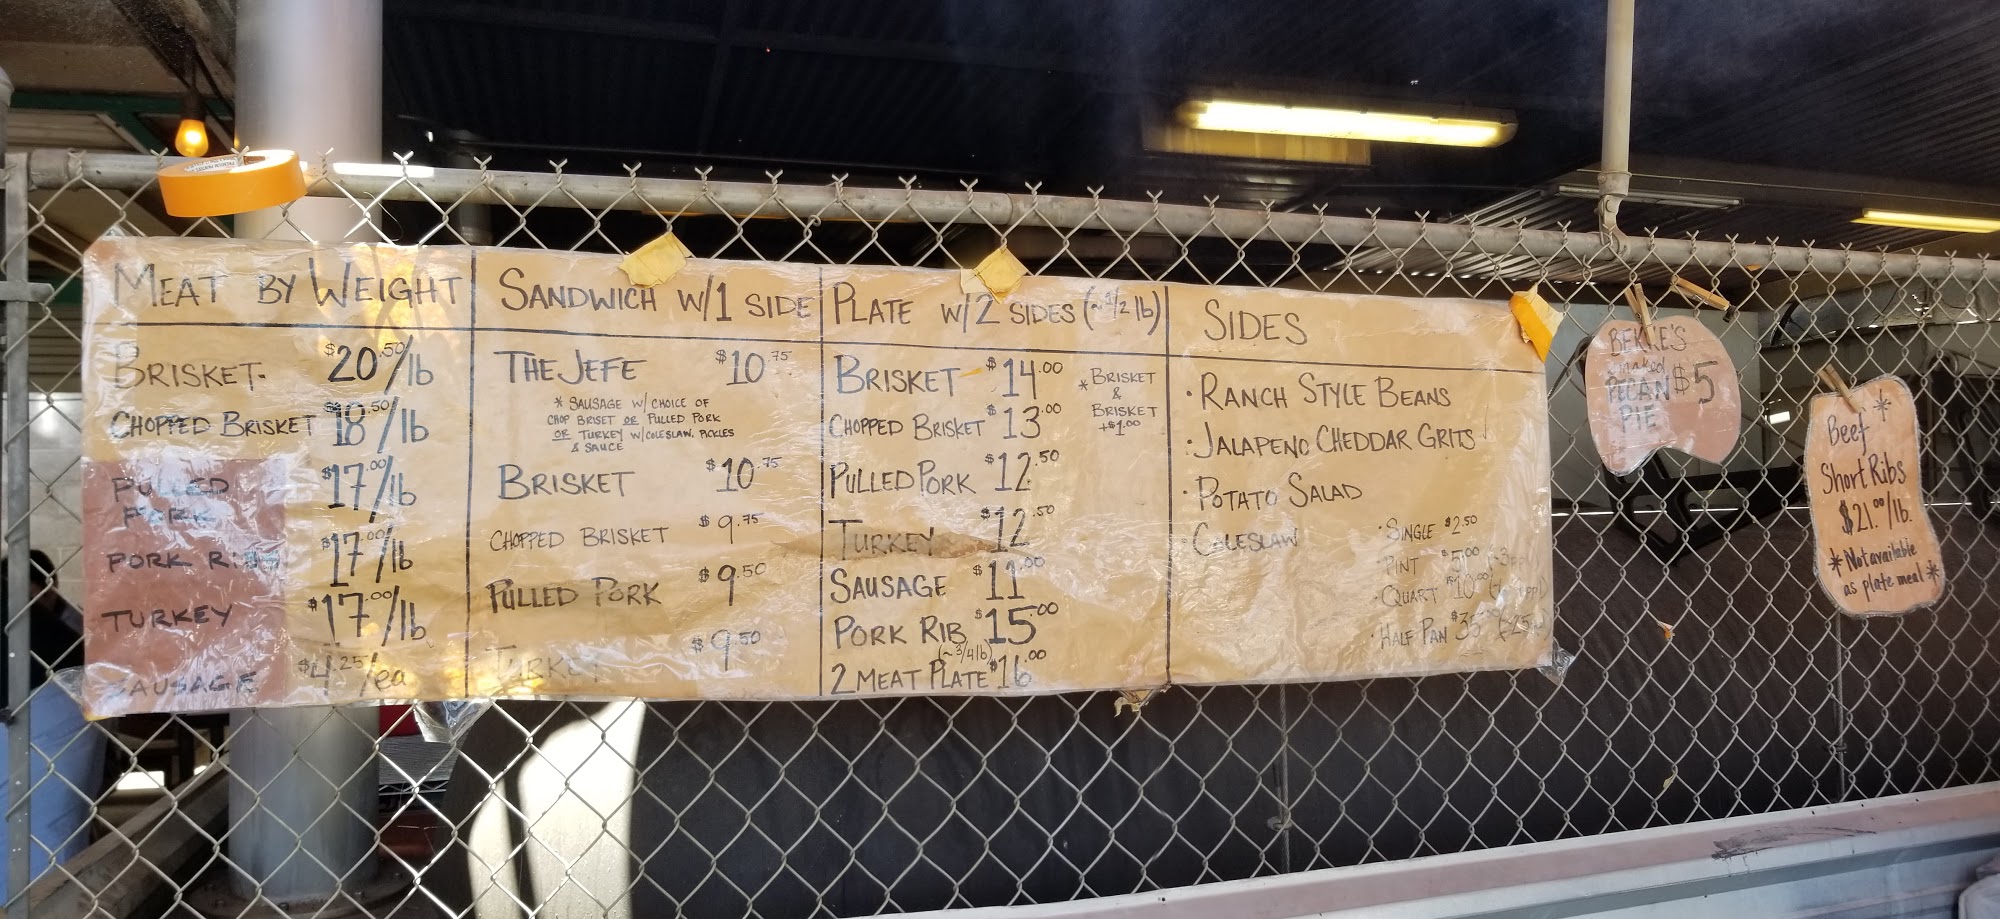 MEAT BY WEIGHT
BRISKET $20.50/lb
CHOPPED BRISKET $18.50/lb
PULLED PORK $17.00/lb
PORK RIBS $17.00/lb
TURKEY $17.00/lb
SAUSAGE $4.25/ea
SANDWICH W/1 SIDE
THE JEFE $10.75
* SAUSAGE W/ CHOICE OF
CHOP BRISET OR PULLED PORK
OR TURKEY W/COLESLAW, PICKLES
& SAUCE
BRISKET $10.75
CHOPPED BRISKET $9.75
PULLED PORK $9.50
TURKEY $9.50
PLATE W/2 SIDES (~1/2 lb)
BRISKET $14.00
CHOPPED BRISKET $13.00
* BRISKET
&
BRISKET
+$1.00
PULLED PORK $12.50
TURKEY $12.50
SAUSAGE $11.00
PORK RIB $15.00
(~3/4lb)
2 MEAT PLATE $16.00
SIDES
· RANCH STYLE BEANS
· JALAPENO CHEDDAR GRITS
· POTATO SALAD
· COLESLAW
· SINGLE $2.50
· PINT $5.00
· QUART $10.00
· HALF PAN $35
BEKKE'S
naked
PECAN $5
PIE
Beef *
Short Ribs
$21.00/lb.
* Not available
as plate meal *
PREMIUM